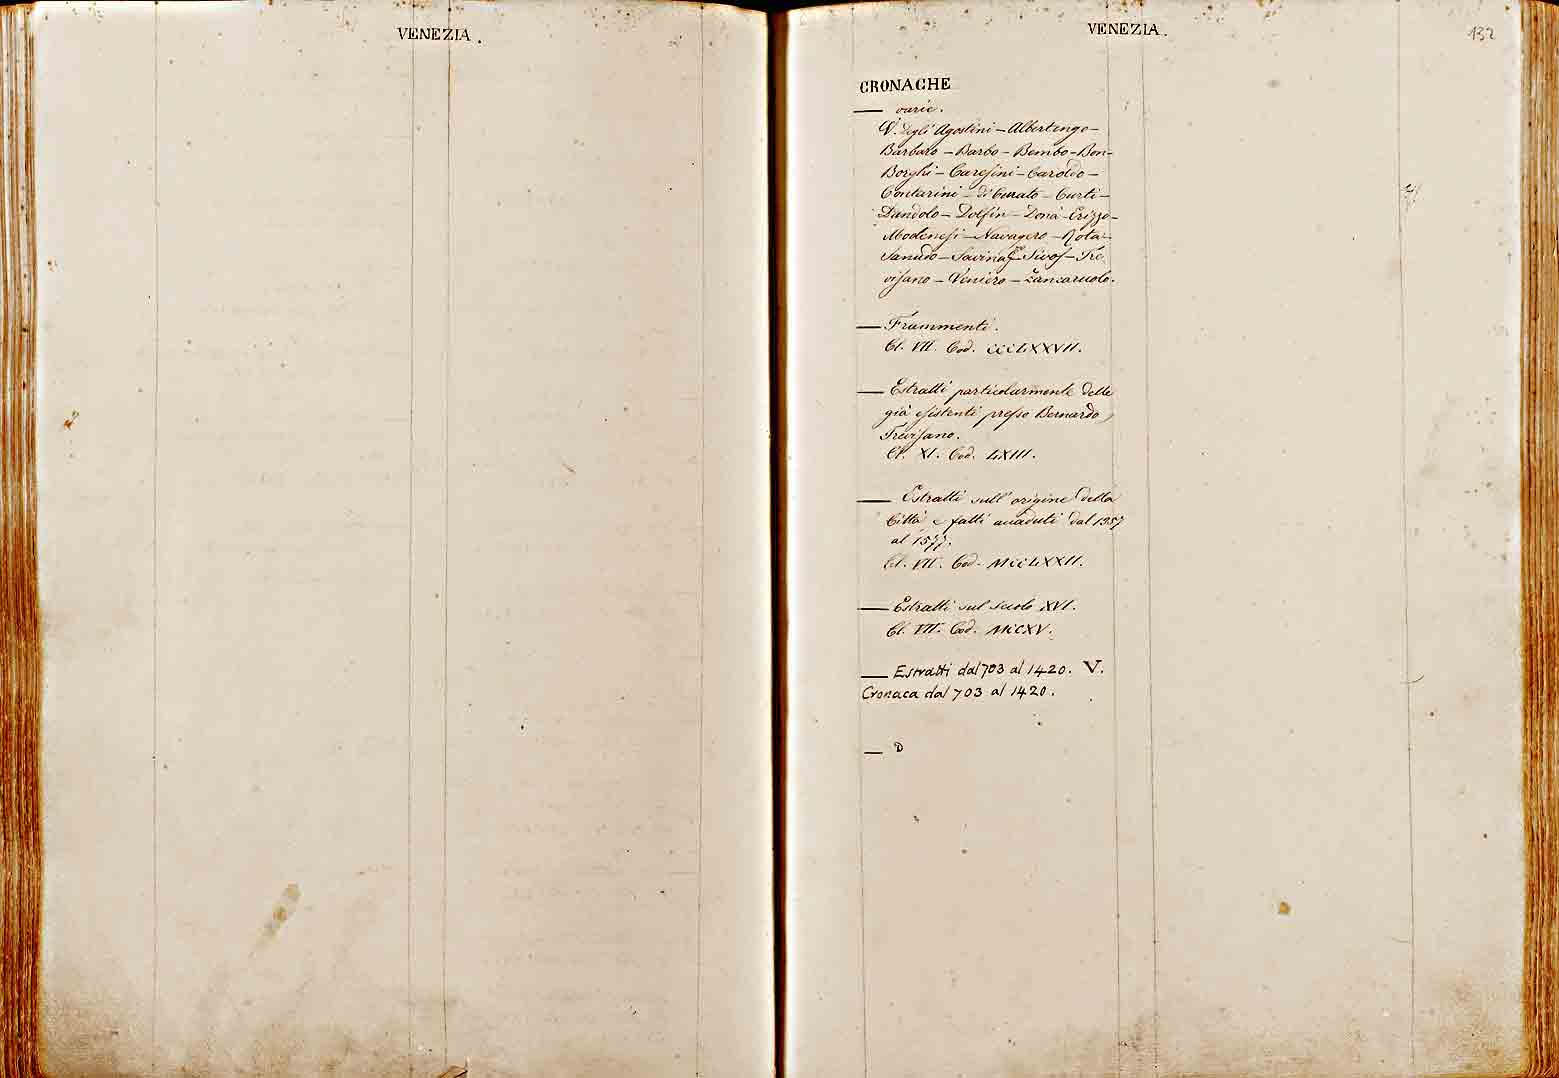 VENEZIA.
VENEZIA.
132
CRONACHE
— varie.
V. Degli Agostini – Albertengo –
Barbaro – Barbo – Bembo – Bon –
Borghi – Caresini – Caroldo –
Contarini – di Currato – Curti –
Dandolo – Dolfin – Donà – Erizzo –
Modenesi – Navagero – Rota –
Sanudo – Savina – Sivos – Tre
visano – Veniero – Zancaruolo.
— Frammenti.
Cl. VII. Cod. CCCLXXVII.
— Estratti particolarmente delle
già esistenti presso Bernardo
Trevisano.
Cl. XI. Cod. LXIII.
— Estratti sull'origine della
Città e fatti accaduti dal 1357
al 1577.
Cl. VII. Cod. MCCLXXII.
— Estratti sul secolo XVI.
Cl. VII. Cod. MCCXV.
— Estratti dal 703 al 1420. V.
Cronaca dal 703 al 1420.
— D